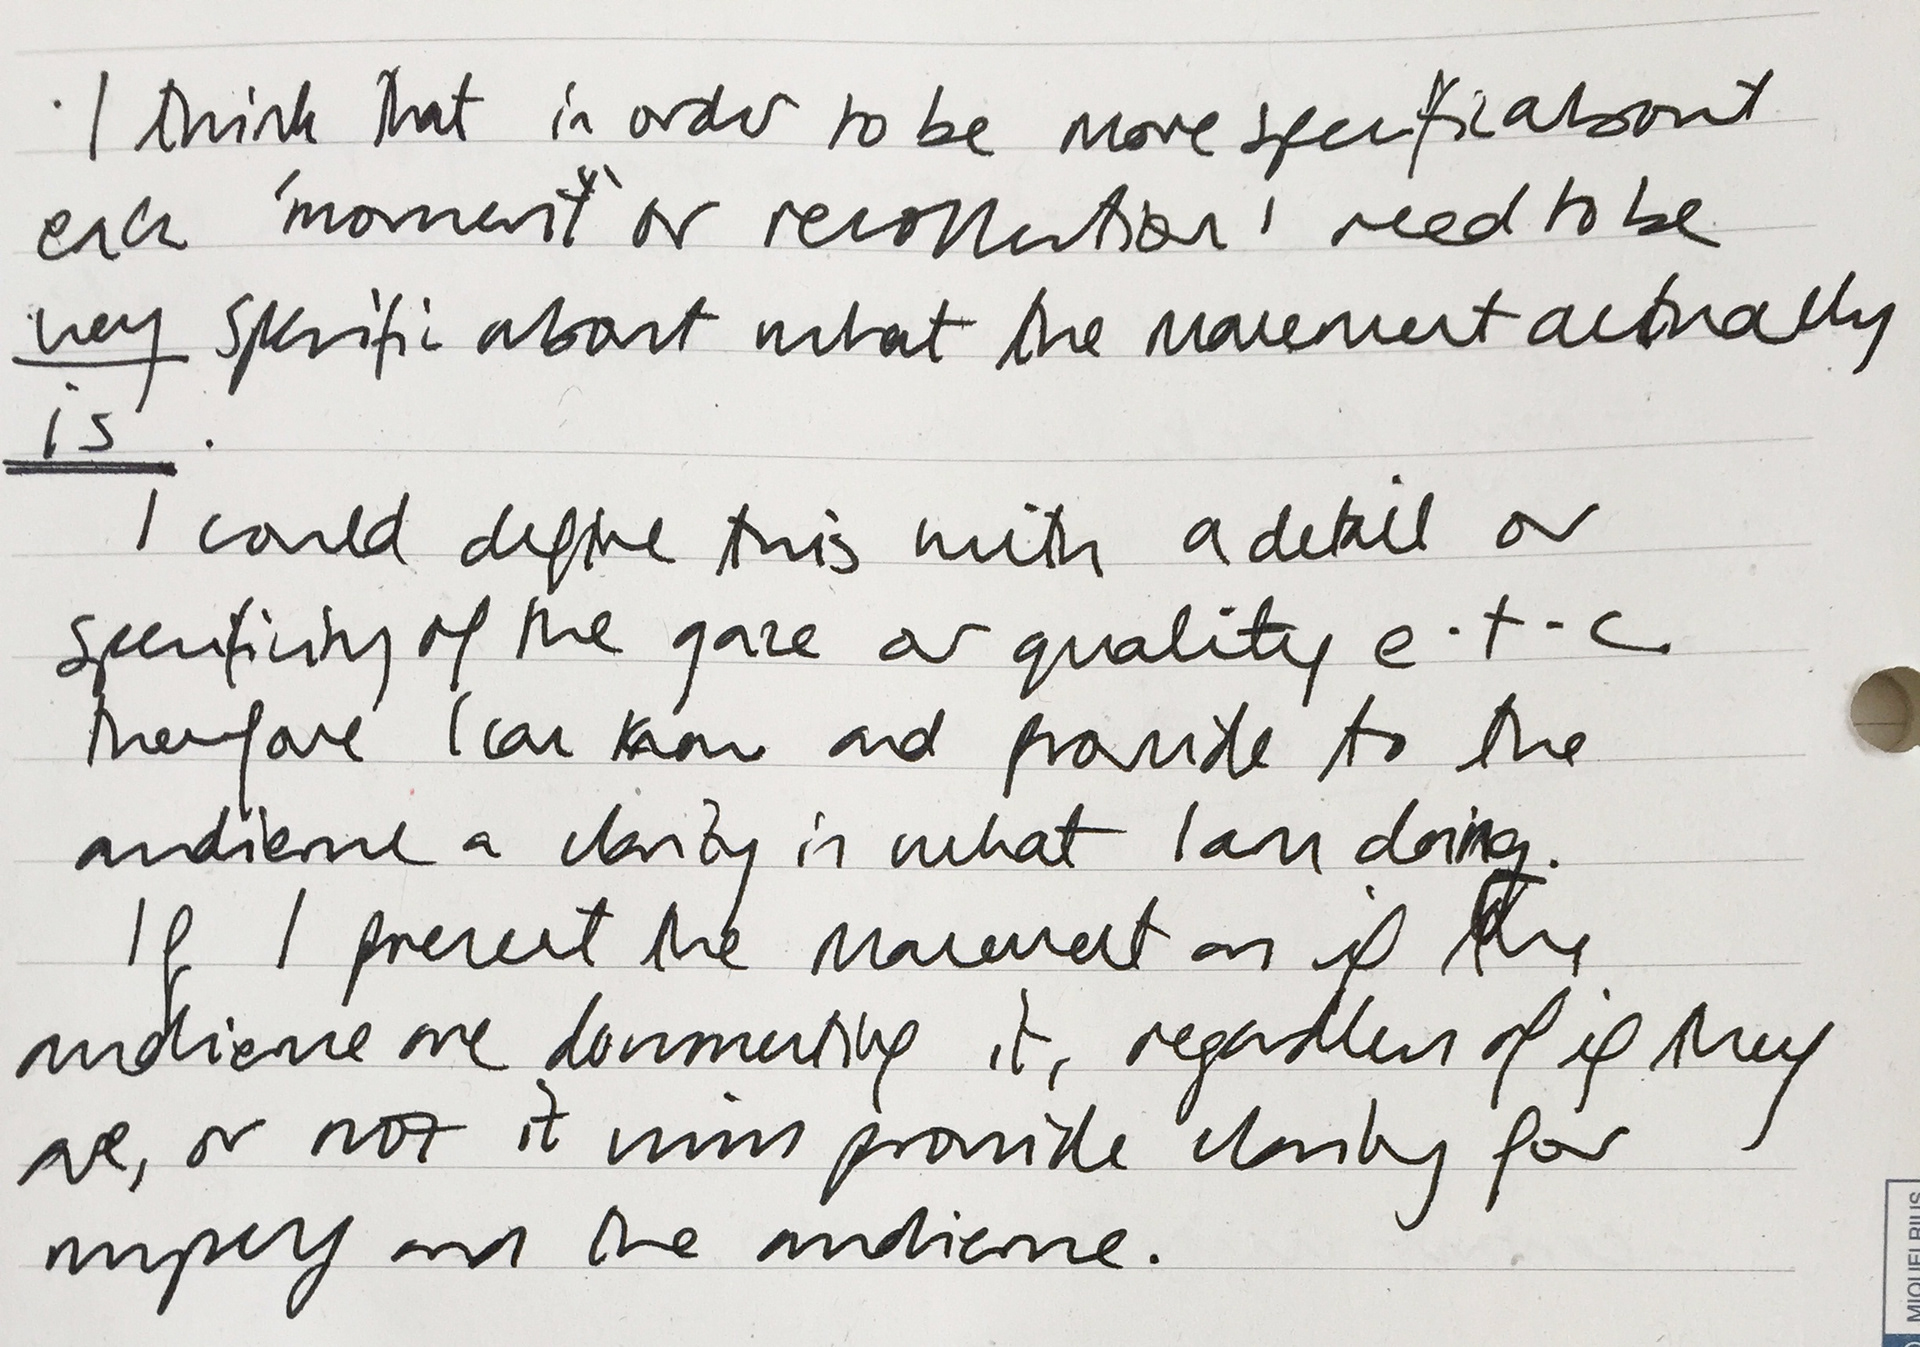 · I think that in order to be more specific about
each "moment" or recollection I need to be
very specific about what the movement actually
is.
I could define this with a detail or
specificity of the gaze or quality e.t.c.
therefore I can know and provide to the
audience a clarity in what I am doing.
If I present the movement as if the
audience are documenting it, regardless of if they
are, or not it will provide clarity for
myself and the audience.
MIQUELRIUS